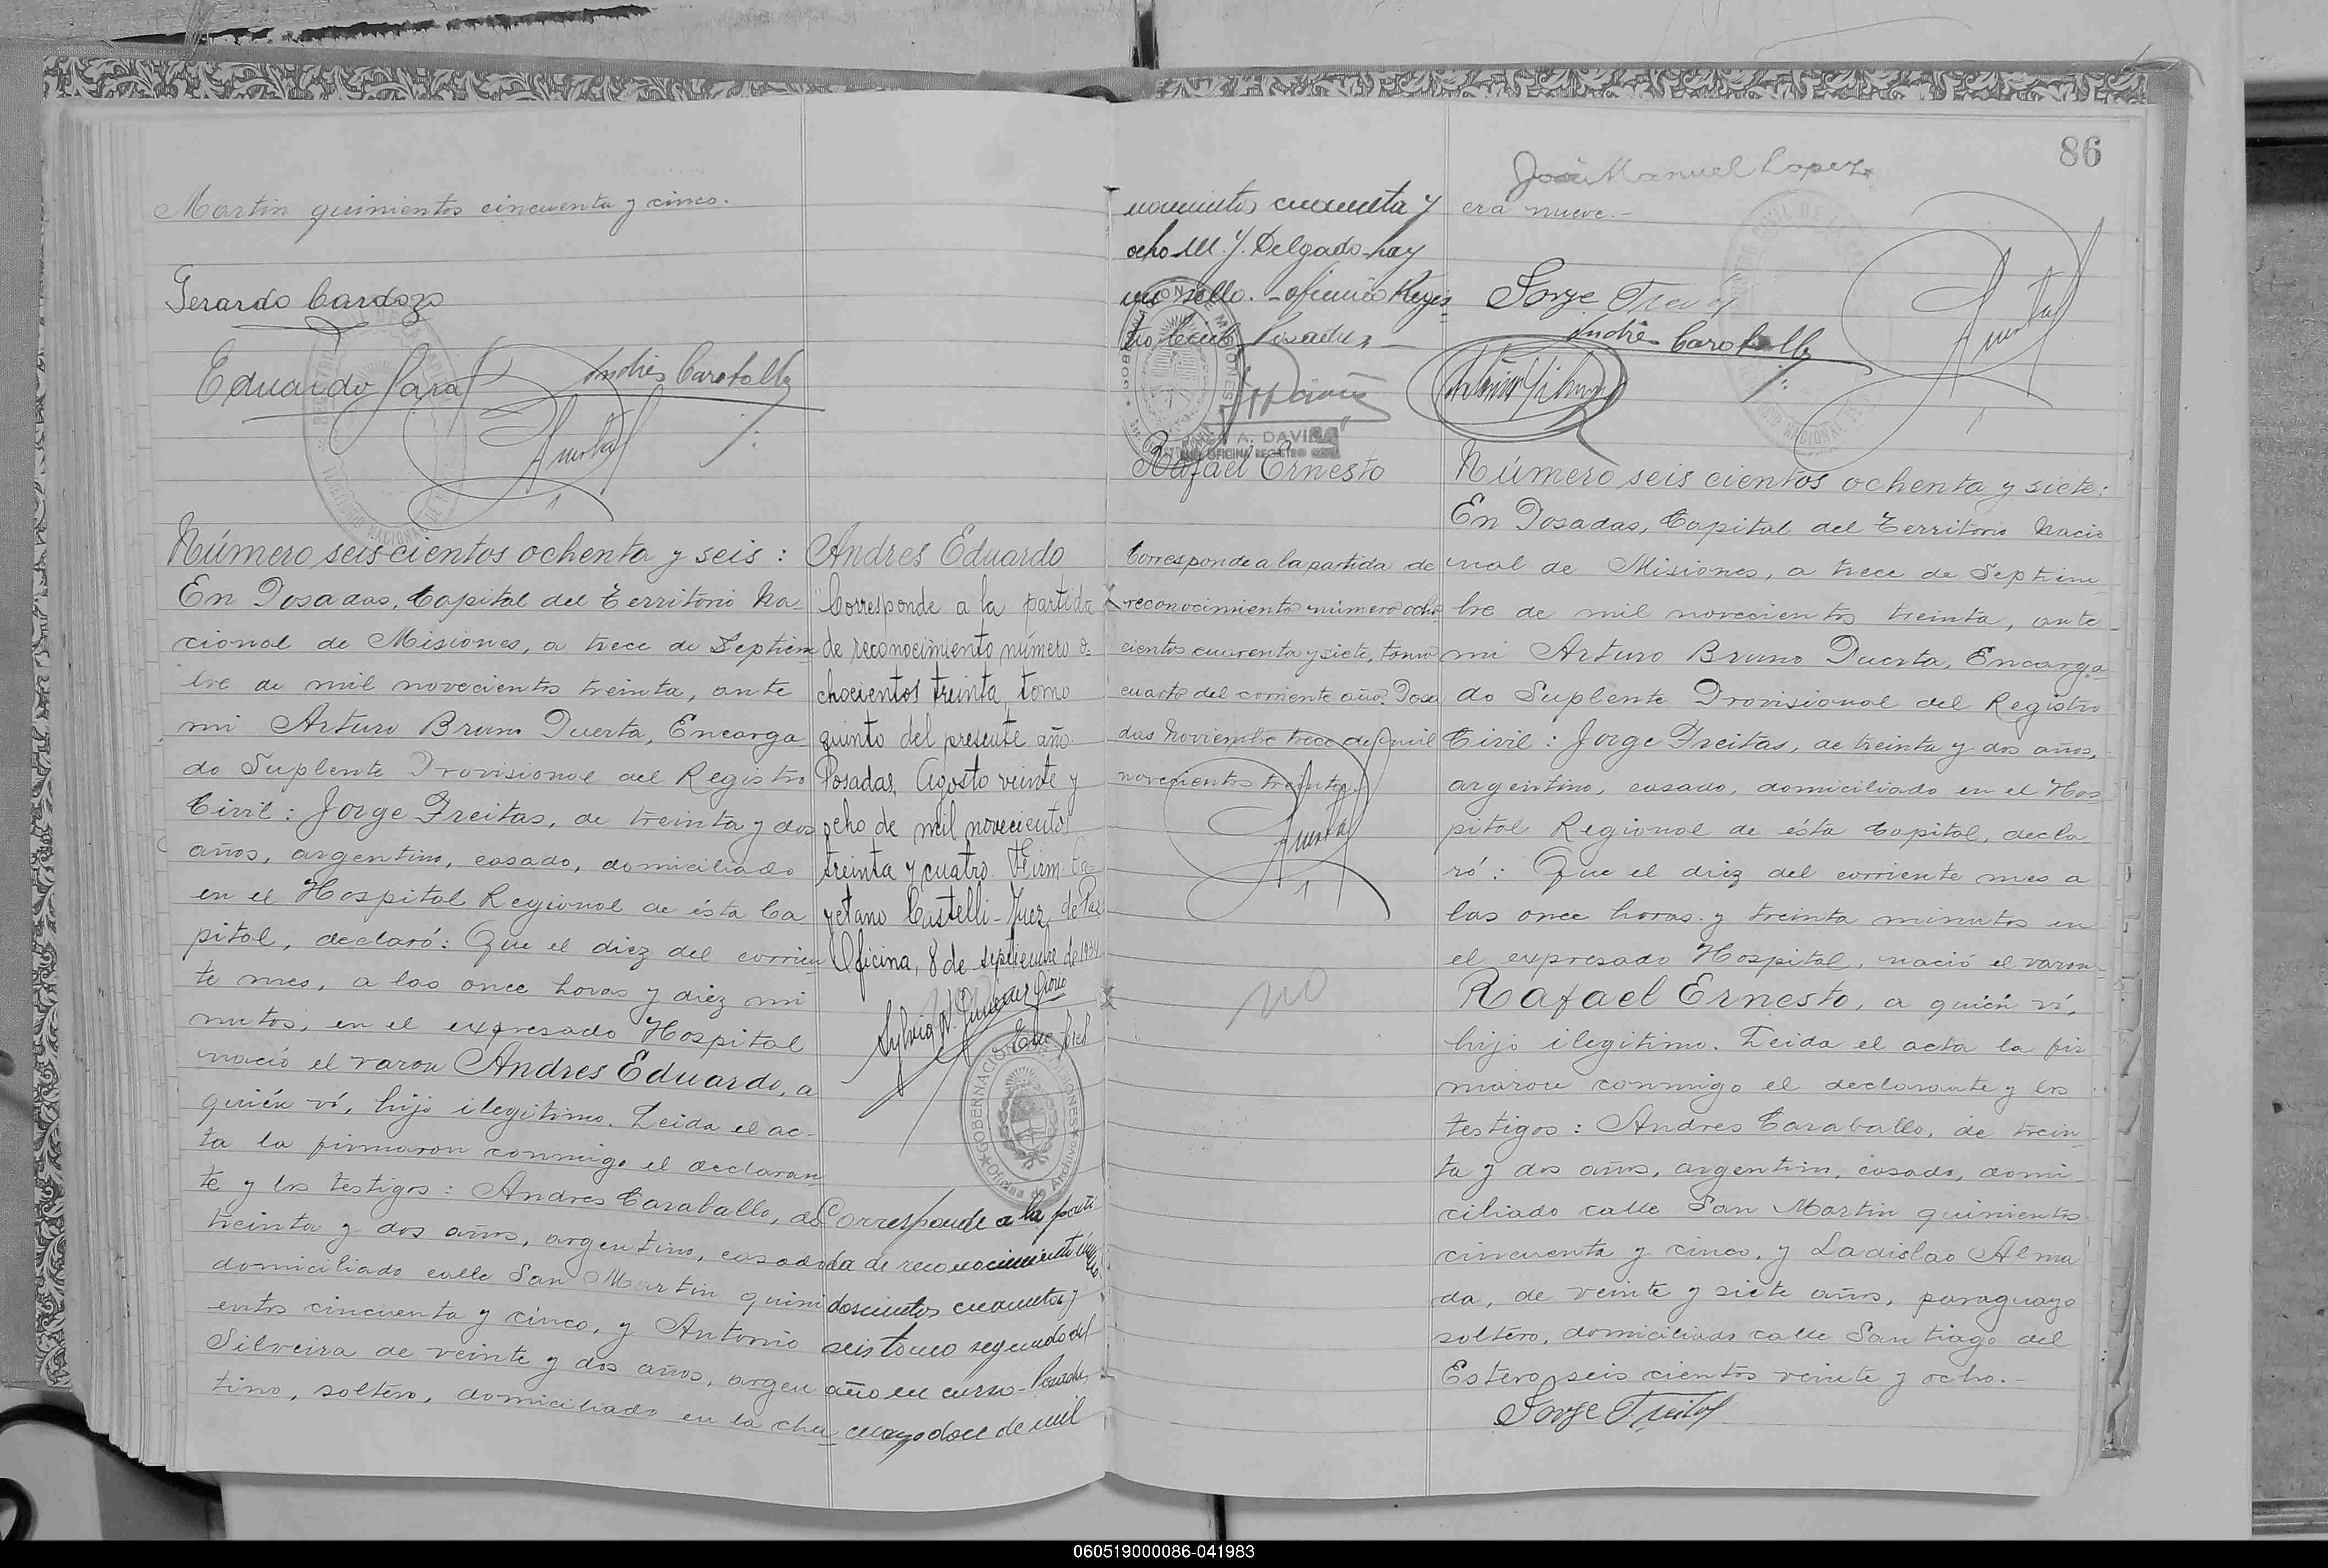 Martin quinientos cincuenta y cinco.
Gerardo Cardozo
Eduardo Sara
Andrés Caraballo
Puerta
Número seis cientos ochenta y seis:
En Posadas, Capital del Territorio Na
cional de Misiones, a trece de Septiem
bre de mil novecientos treinta, ante
mi Arturo Bruno Puerta, Encarga
do Suplente Provisional del Registro
Civil: Jorge Freitas, de treinta y dos
años, argentino, casado, domiciliado
en el Hospital Regional de ésta Ca
pital, declaró: Que el diez del corrien
te mes, a las once horas y diez mi
nutos, en el expresado Hospital
nació el varon Andres Eduardo, a
quién ví, hijo ilegitimo. Leida el ac-
ta la firmaron conmigo el declaran
te y los testigos: Andres Caraballo, de
treinta y dos años, argentino, casado
domiciliado calle San Martin quini
entos cincuenta y cinco, y Antonio
Silveira de veinte y dos años, argen
tino, soltero, domiciliado en la cha
Andres Eduardo
Corresponde a la partida
de reconocimiento número o-
chocientos treinta, tomo
quinto del presente año.
Posadas, Agosto veinte y
ocho de mil novecientos
treinta y cuatro. Firm. Ca-
yetano Castelli - Juez de Paz
Oficina, 8 de septiembre de 1934
GOBERNACION DE MISIONES
Oficina de Archivo
Corresponde a la parti
da de reconocimiento número
doscientos cuarenta y
seis tomo segundo del
año en curso - Posadas,
mayo doce de mil
novecientos cuarenta y
ocho M. Y. Delgado - hay
un sello. - oficina Regis
tro Civil Posadas -
A. DAVIÑA
OFICINA REGISTRO CIVIL
Rafael Ernesto
Corresponde a la partida de
reconocimiento número ocho
cientos cuarenta y siete, tomo
cuarto del corriente año. Posa
das Noviembre trece de mil
novecientos treinta.
Puerta
no
86
José Manuel Lopez
cra nueve.-
Jorge Freitas
Andrés Caraballo
Puerta
Número seis cientos ochenta y siete:
En Posadas, Capital del Territorio Nacio
nal de Misiones, a trece de Septiem
bre de mil novecientos treinta, ante
mi Arturo Bruno Puerta, Encarga
do Suplente Provisional del Registro
Civil: Jorge Freitas, de treinta y dos años,
argentino, casado, domiciliado en el Hos
pital Regional de ésta Capital, decla
ró: Que el diez del corriente mes a
las once horas y treinta minutos en
el expresado Hospital, nació el varon
Rafael Ernesto, a quién ví,
hijo ilegitimo. Leida el acta la fir
maron conmigo el declarante y los
testigos: Andres Caraballo, de trein
ta y dos años, argentino, casado, domi
ciliado calle San Martin quinientos
cincuenta y cinco, y Ladislao Alma
da, de veinte y siete años, paraguayo
soltero, domiciliado calle Santiago del
Estero seis cientos veinte y ocho.-
Jorge Freitas
060519000086-041983